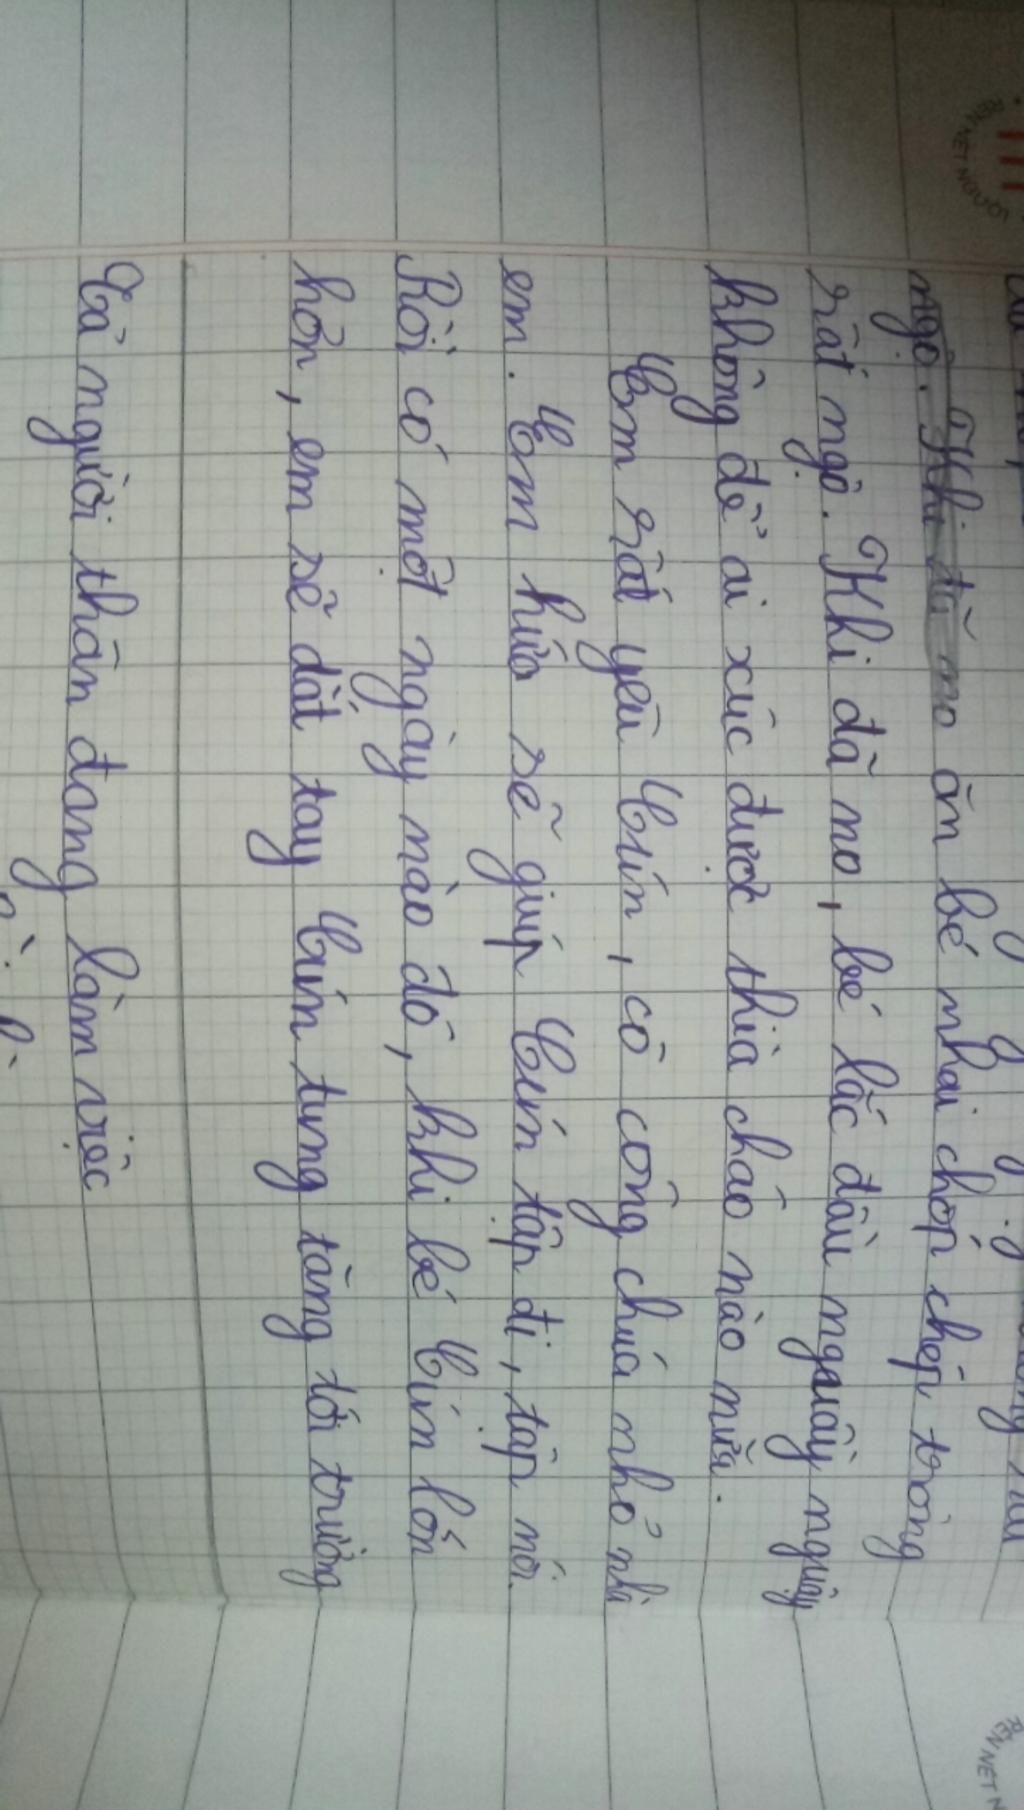 ngộ. Khi đã mo ăn bé nhai chóp chép, trông
rất ngộ. Khi đã no, bé lắc đầu nguây nguẩy
không để ai xúc được thìa cháo nào nữa.
Em rất yêu Cún, cô công chúa nhỏ nhà
em. Em hứa sẽ giúp Cún tập đi, tập nói.
Rồi có một ngày nào đó, khi bé Cún lớn
hơn, em sẽ dắt tay Cún tung tăng tới trường
Tả người thân đang làm việc
RÈN NÉT